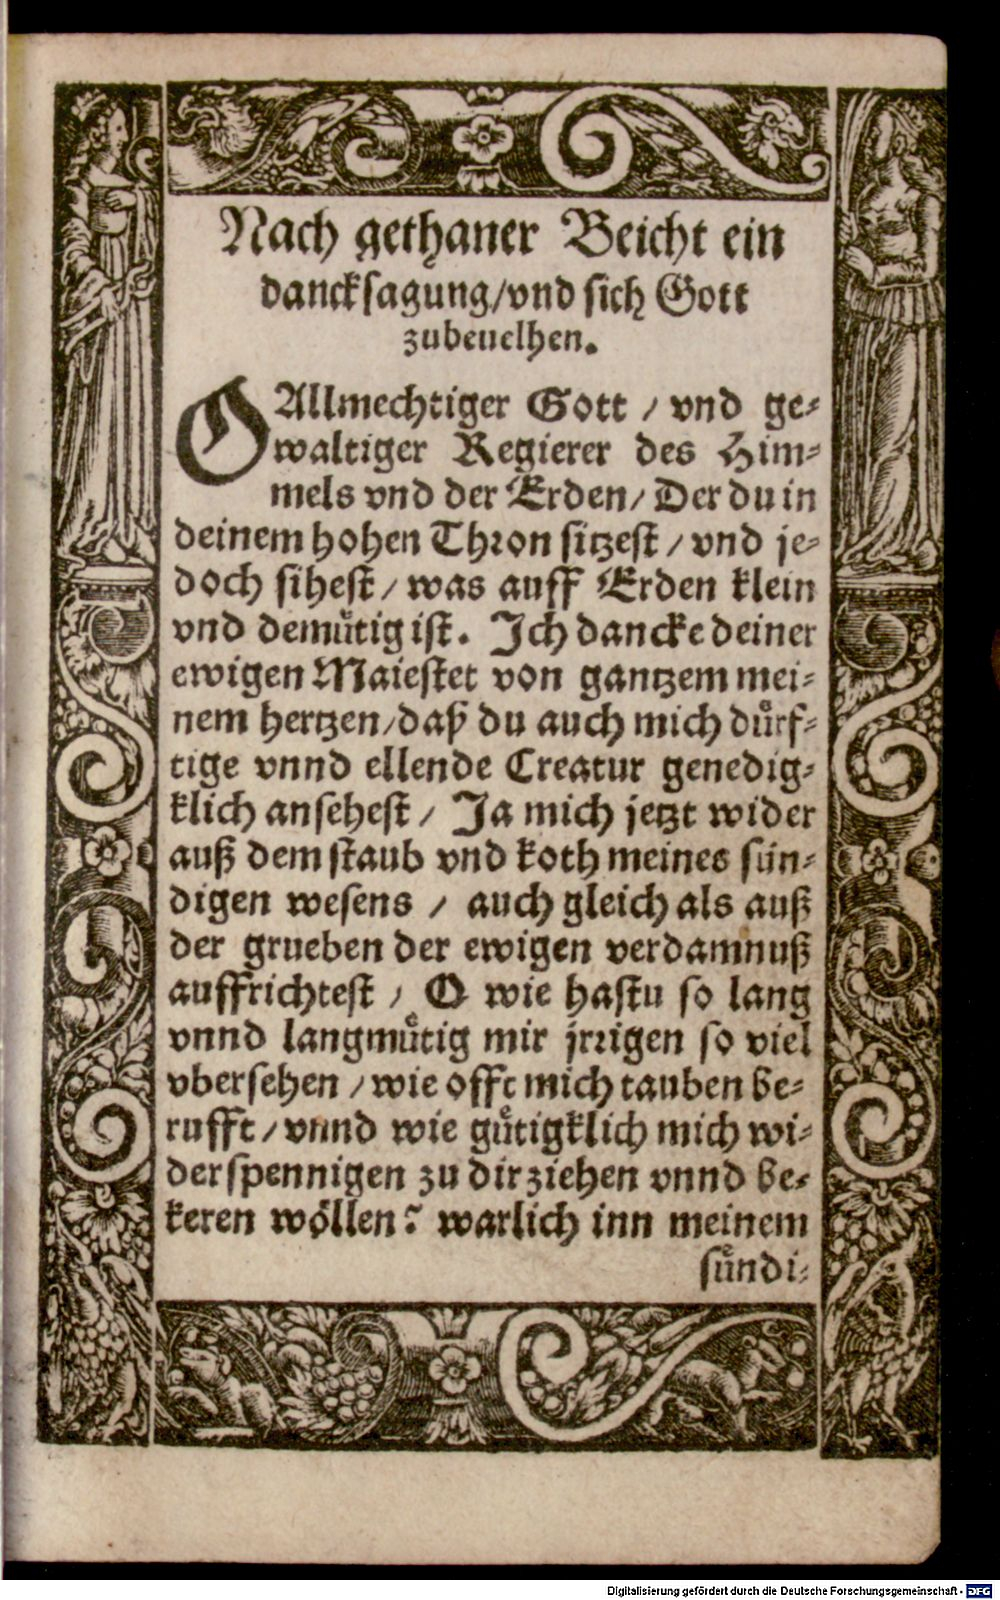 Nach gethaner Beicht ein
dancksagung/vnd sich Gott
zubeuelhen.
O Allmechtiger Gott / vnd ge-
waltiger Regierer des Him-
mels vnd der Erden/ Der du in
deinem hohen Thron sitzest / vnd je-
doch sihest / was auff Erden klein
vnd demuͤtig ist. Ich dancke deiner
ewigen Maiestet von gantzem mei-
nem hertzen/daß du auch mich duͤrf-
tige vnnd ellende Creatur genedig-
klich ansehest / Ja mich jetzt wider
auß dem staub vnd koth meines sün-
digen wesens / auch gleich als auß
der grueben der ewigen verdamnuß
auffrichtest / O wie hastu so lang
vnnd langmuͤtig mir jrrigen so viel
vbersehen / wie offt mich tauben be-
rufft / vnnd wie guͤtigklich mich wi-
derspennigen zu dir ziehen vnnd be-
keren woͤllen? warlich inn meinem
suͤndi-
Digitalisierung gefördert durch die Deutsche Forschungsgemeinschaft - DFG